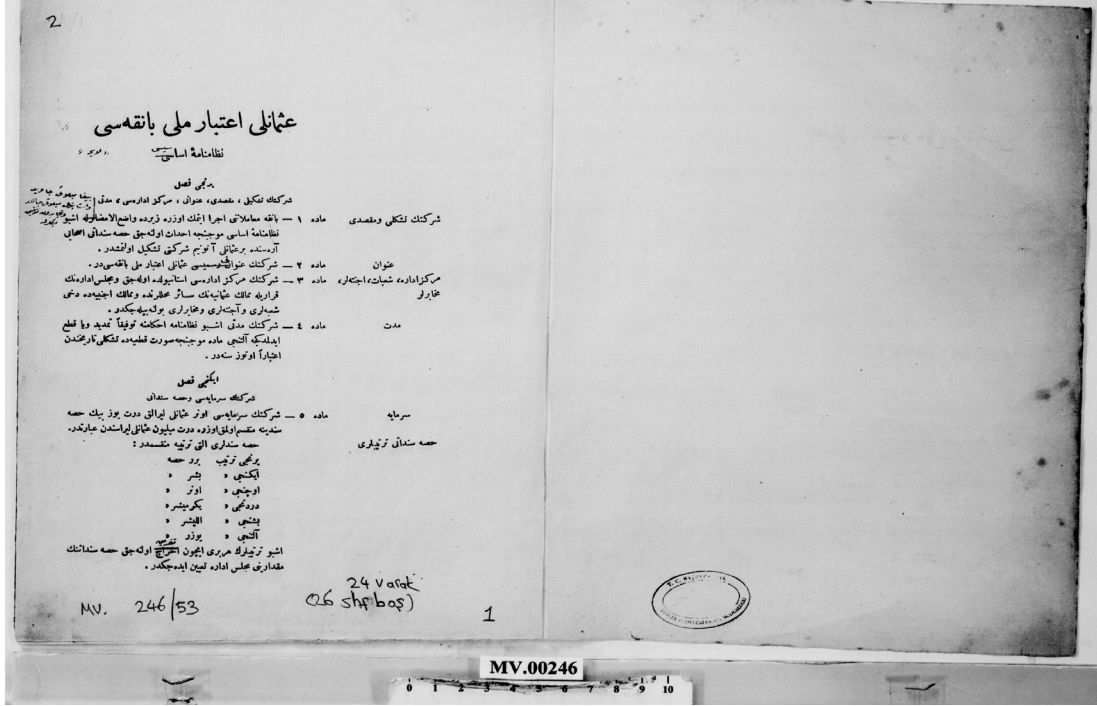 2
عثمانلی اعتبار ملی بانقه‌سی
نظامنامهٔ اساسی
برنجی فصل
شرکتك تشکیل ، مقصدی، عنوانی ، مرکز اداره‌سی ، مدتی
شرکتك تشکلی ومقصدی
ماده ١ — بانقه معاملاتی اجرا ایتمك اوزره زیرده واضع‌الامضالرله اشبو
نظامنامهٔ اساسی موجبنجه احداث اوله‌جق حصه سنداتی اصحابی
آره‌سنده بر عثمانلی آنونیم شرکتی تشکیل اولنمشدر .
عنوان
ماده ٢ — شرکتك عنوان رسمیسی عثمانلی اعتبار ملی بانقه‌سی‌در .
مرکز اداره، شعبات، اجنته‌لر،
مخابرلر
ماده ٣ — شرکتك مرکز اداره‌سی استانبولده اوله‌جق ومجلس اداره‌نك
قراریله ممالك عثمانیه‌نك سـائر محللرنده وممالك اجنبیه‌ده دخی
شعبه‌لری وآجنته‌لری ومخابرلری بولنه‌بیله‌جکدر .
مدت
ماده ٤ — شرکتك مدتی اشـبو نظامنامه احکامنه توفیقاً تمدید ویا قطع
ایدلمدیکه آلتنجی ماده موجبنجه صورت قطعیه‌ده تشکلی تاریخندن
اعتباراً اوتوز سنه‌در .
ایکنجی فصل
شرکتك سرمایه‌سی وحصه سنداتی
سرمایه
ماده ٥ — شرکتك سرمایه‌سی اونر عثمانلی لیرالق درت یوز بیك حصه
سندینه منقسم اولمق اوزره درت میلیون عثمانلی لیراسندن عبارتدر.
حصه سنداتی ترتیبلری
حصه سندلری التی ترتیبه منقسمدر :
برنجی ترتیب برر حصه
ایکنجی » بشر »
اوچنجی » اونر »
دردنجی » یکرمیشر »
بشنجی » اللیشر »
آلتنجی » یوزر »
اشبو ترتیبلرك هربری ایچون اخراج اوله‌جق حصه سنداتنك
مقدارینی مجلس اداره تعیین ایده‌جکدر .
24 varak
(26 shf boş)
MV. 246/53
1
MV.00246
0 1 2 3 4 5 6 7 8 9 10